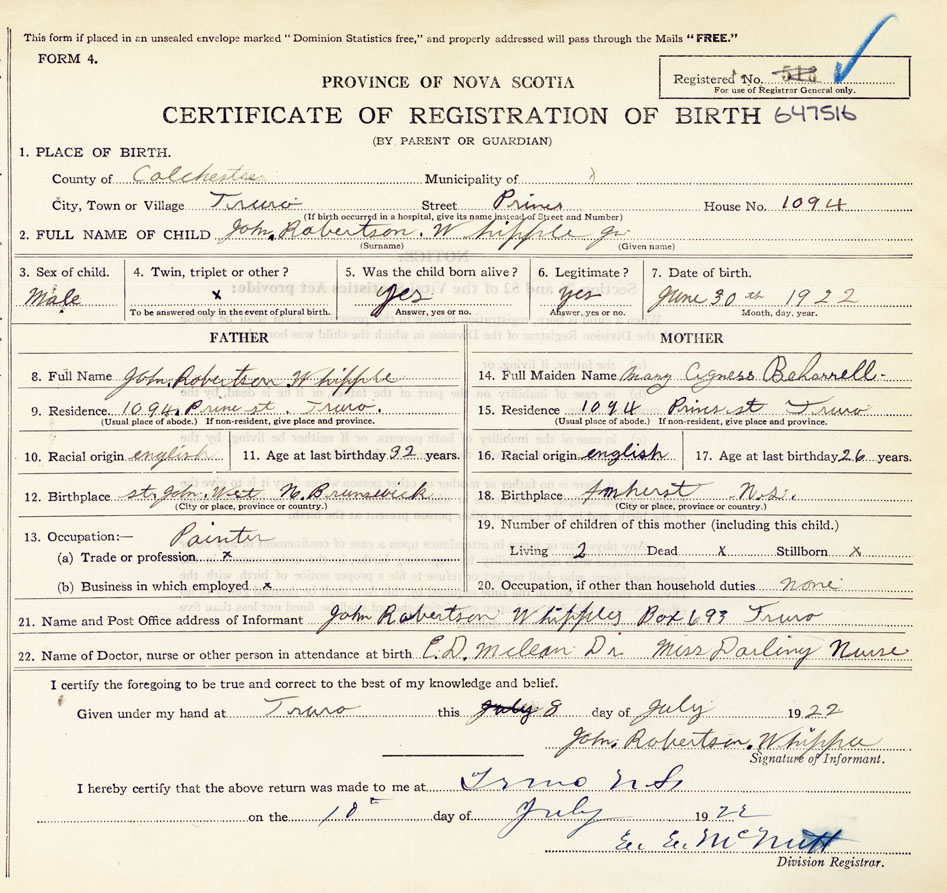 This form if placed in an unsealed envelope marked "Dominion Statistics free," and properly addressed will pass through the Mails "FREE."
FORM 4.
PROVINCE OF NOVA SCOTIA
Registered No. 513
For use of Registrar General only.
CERTIFICATE OF REGISTRATION OF BIRTH 647516
(BY PARENT OR GUARDIAN)
1. PLACE OF BIRTH.
County of Colchester Municipality of x
City, Town or Village Truro Street Prince House No. 1094
(If birth occurred in a hospital, give its name instead of Street and Number)
2. FULL NAME OF CHILD John. Robertson. Whipple Jr.
(Surname) (Given name)
3. Sex of child. 4. Twin, triplet or other? 5. Was the child born alive? 6. Legitimate? 7. Date of birth.
Male x yes yes June 30th 1922
To be answered only in the event of plural birth. Answer, yes or no. Answer, yes or no. Month, day, year.
FATHER MOTHER
8. Full Name John. Robertson Whipple 14. Full Maiden Name Mary Agness Beharrell-
9. Residence. 1094. Prince st. Truro. 15. Residence 1094 Prince st Truro
(Usual place of abode.) If non-resident, give place and province. (Usual place of abode.) If non-resident, give place and province.
10. Racial origin english 11. Age at last birthday 32 years. 16. Racial origin english 17. Age at last birthday 26 years.
12. Birthplace st. John. West N. Brunswick 18. Birthplace Amherst N.S.
(City or place, province or country.) (City or place, province or country.)
13. Occupation:— Painter 19. Number of children of this mother (including this child.)
(a) Trade or profession x Living 2 Dead x Stillborn x
(b) Business in which employed x 20. Occupation, if other than household duties none
21. Name and Post Office address of Informant John Robertson Whipple Box 693 Truro
22. Name of Doctor, nurse or other person in attendance at birth E.D. Mclean Dr. Miss Darling Nurse
I certify the foregoing to be true and correct to the best of my knowledge and belief.
Given under my hand at Truro this July 8 day of July 1922
John. Robertson. Whipple
Signature of Informant.
I hereby certify that the above return was made to me at Truro N.S.
on the 10th day of July 1922
E. E. McNutt
Division Registrar.